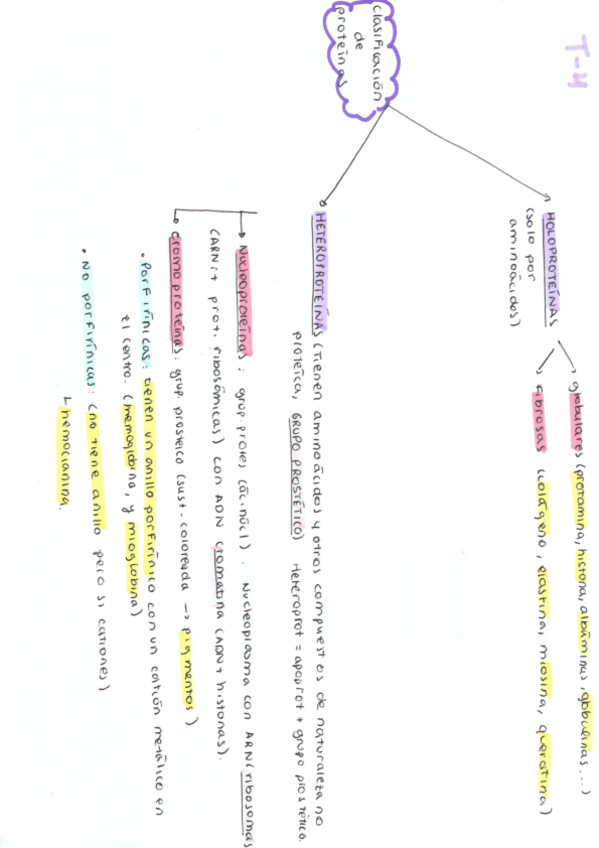 T-4
clasificación
de
proteínas
HOLOPROTEÍNAS
(solo por
aminoácidos)
globulares (protamina, histona, albúminas, globulinas...)
fibrosas (colágeno, elastina, miosina, queratina)
HETEROPROTEÍNAS (Tienen aminoácidos y otros compuestos de naturaleza no
proteica, GRUPO PROSTÉTICO) Heteroprot = apoprot + grupo prostético.
Nucleoproteínas: grup. prostes (ác. núcl). Nucleoplasma con ARN (ribosomas
(ARNr + prot. ribosómicas) con ADN cromatina (ADN + histonas).
cromoproteínas: grup. prostético (sust. coloreada → pigmentos)
• Porfirínicas: tienen un anillo porfirínico con un catión metálico en
el centro. (hemoglobina, y mioglobina)
• No porfirínicas: (no tiene anillo pero si cationes)
hemocianina.